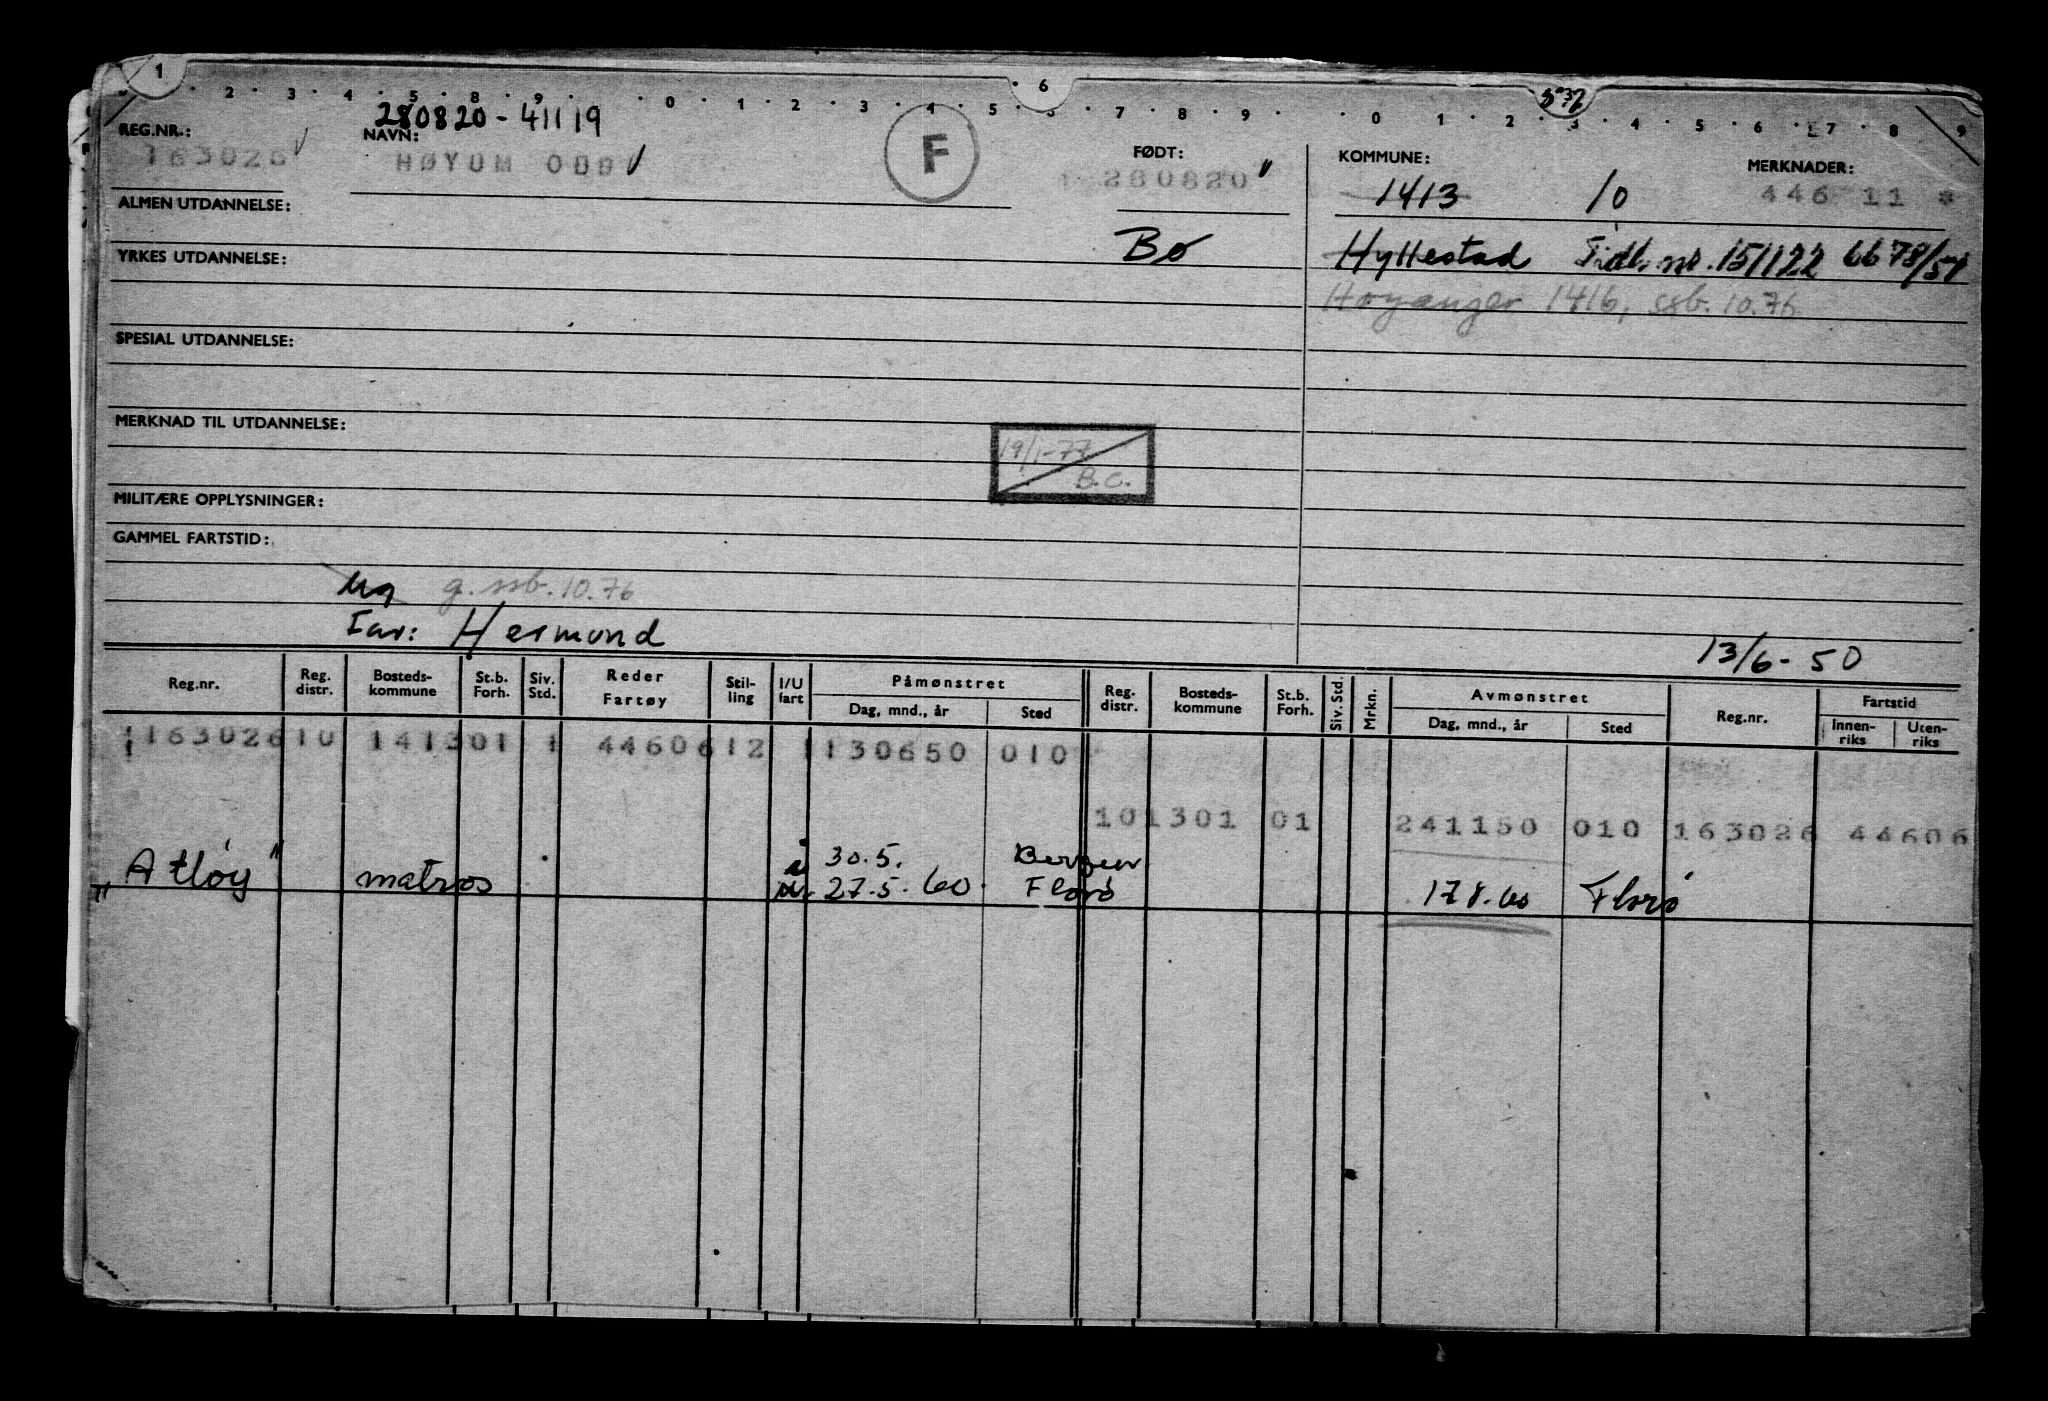 1 6
2 3 4 5 8 9 0 1 2 3 4 5 7 8 9 0 1 2 3 4 5 6 7 8 9
280820-41119
REG.NR.: NAVN: F FØDT: KOMMUNE: MERKNADER:
163026 HØYUM ODD 280820 1413 10 446 11 *
ALMEN UTDANNELSE:
Bø Hyllestad Tidl. nr. 151122 6678/57
YRKES UTDANNELSE:
Høyanger 1416, ssb. 10.76
SPESIAL UTDANNELSE:
MERKNAD TIL UTDANNELSE:
19/1-77
B.C.
MILITÆRE OPPLYSNINGER:
GAMMEL FARTSTID:
Ug g. ssb. 10.76
Far: Hermund
13/6-50
Reg.nr. Reg. distr. Bosteds-kommune St.b. Forh. Siv. Std. Reder Fartøy Stil-ling I/U fart Påmønstret Dag, mnd., år Sted Reg. distr. Bosteds-kommune St.b. Forh. Siv. Std. Mrkn. Avmønstret Dag, mnd., år Sted Reg.nr. Fartstid Innen-riks Uten-riks
163026 10 1413 01 1 44606 12 1 130650 010
10 1301 01 241150 010 163026 44606
30.5. Bergen
"Atløy" matros 27.5.60 Florø 17.8.60 Florø